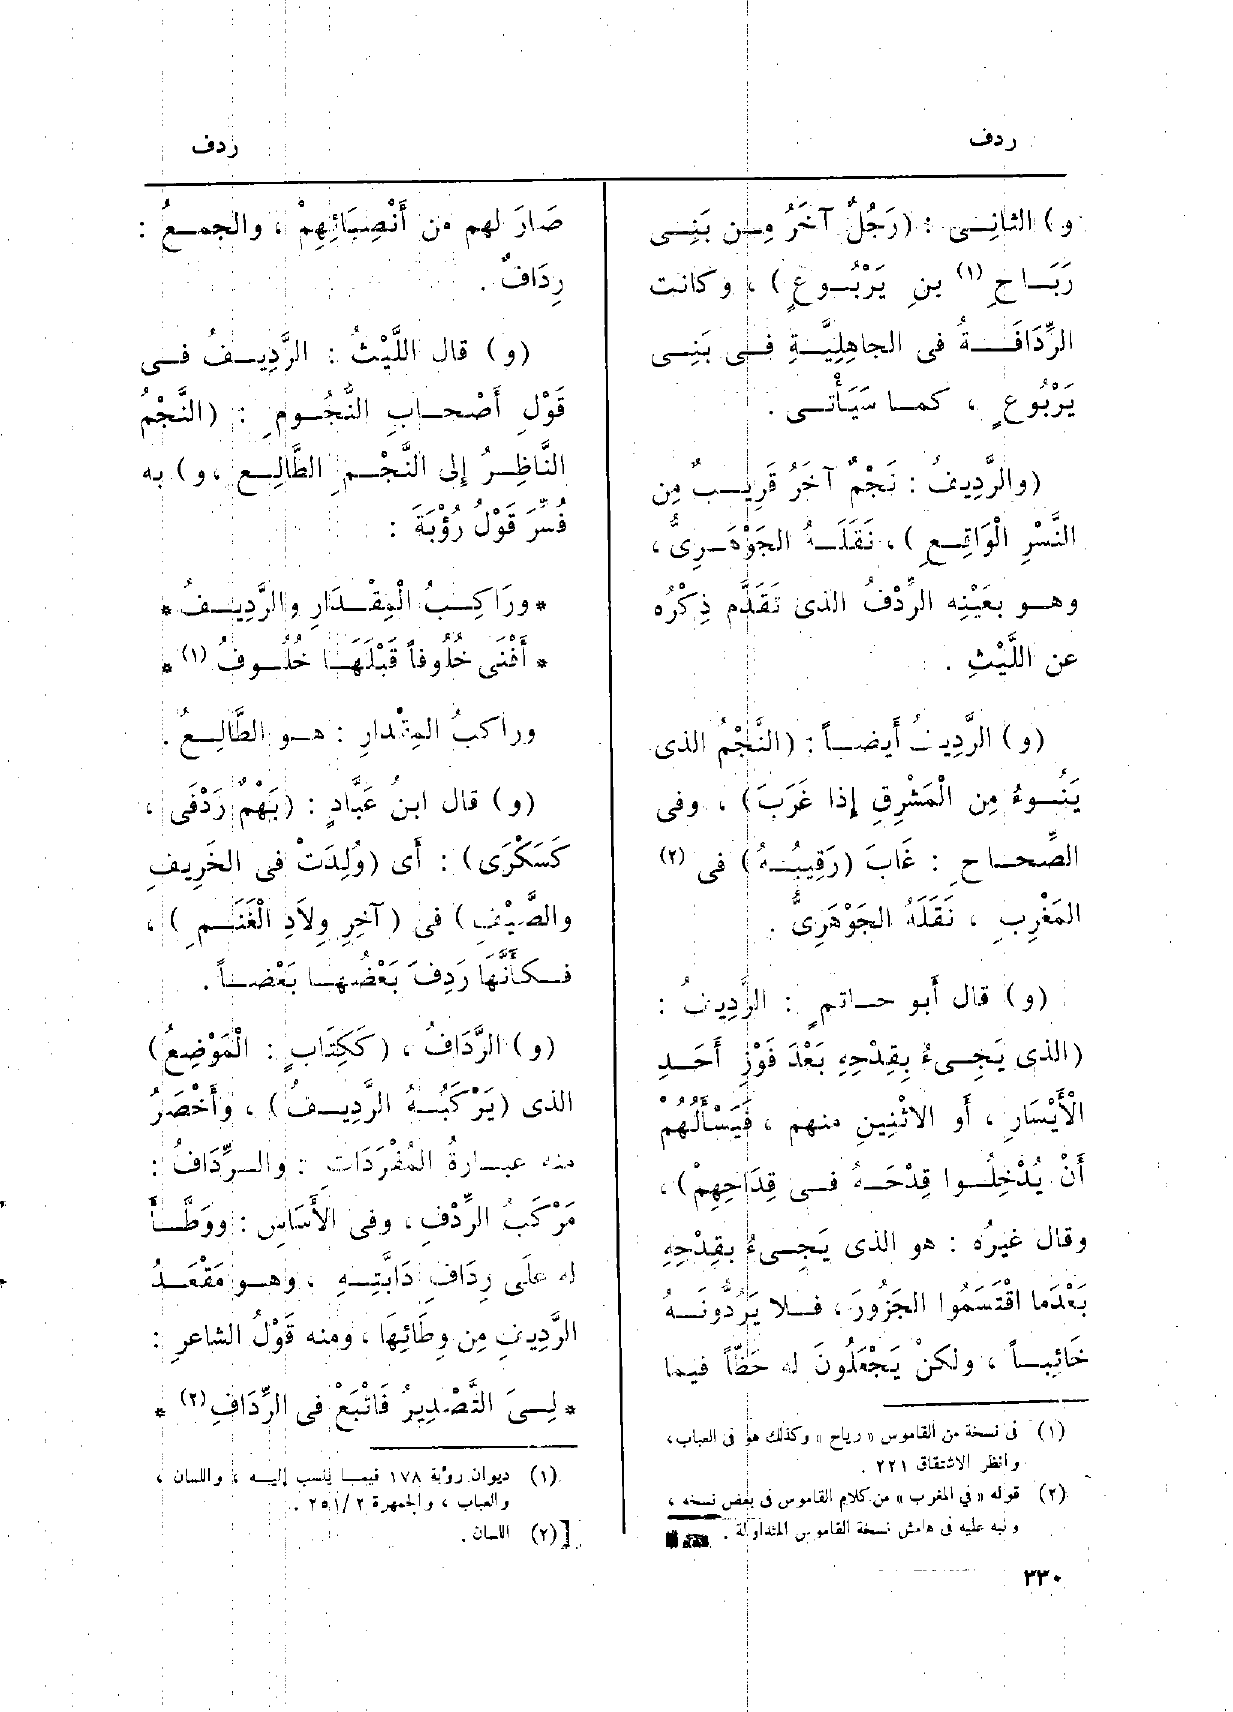 ردف
ردف
و) الثانِى : (رَجُلٌ آخَرُ مِن بَنِى
رَبَاحِ (١) بنِ يَرْبُوعٍ) ، وكانت
الرِّدَافَةُ فى الجاهِلِيَّةِ فى بَنِى
يَرْبُوعٍ ، كما سَيَأْتى .
(والرَّدِيفُ : نَجْمٌ آخَرُ قَرِيبٌ مِن
النَّسْرِ الْوَاقِعِ) ، نَقَلَهُ الجَوْهَرِىُّ ،
وهو بعَيْنِه الرِّدْفُ الذى تَقَدَّم ذِكْرُه
عن اللَّيْثِ .
(و) الرَّدِيفُ أَيضاً : (النَّجْمُ الذى
يَنُوءُ مِن الْمَشْرِقِ إِذا غَرَبَ) ، وفى
الصِّحاحِ : غَابَ (رَقِيبُهُ) فى (٢)
المَغْرِبِ ، نَقَلَهُ الجَوْهَرِىُّ .
(و) قال أَبو حاتمٍ : الرَّدِيفُ :
(الذى يَجِىءُ بِقِدْحِهِ بَعْدَ فَوْزِ أَحَدِ
الْأَيْسَارِ ، أَو الاثْنِينِ منهم ، فَيَسْأَلُهُم
أَنْ يُدْخِلُوا قِدْحَهُ فى قِدَاحِهِمْ) ،
وقال غيرُه : هو الذى يَجِىءُ بقِدْحِهِ
بَعْدَما اقْتَسَمُوا الجَزُورَ ، فلا يَرُدُّونَهُ
خَائِباً ، ولكنْ يَجْعَلُونَ له حَظّاً فيما
(١) فى نسخة من القاموس «رياح» وكذلك هو فى العباب،
وانظر الاشتقاق ٢٢١ .
(٢) قوله «في المغرب» من كلام القاموس فى بعض نسخه ،
ونبه عليه فى هامش نسخة القاموس المتداولة .
صَارَ لهم من أَنْصِبَائِهِمْ ، والجمعُ :
رِدَافٌ .
(و) قال اللَّيْثُ : الرَّدِيفُ فى
قَوْلِ أَصْحابِ النُّجُومِ : (النَّجْمُ
النَّاظِرُ إِلى النَّجْمِ الطَّالِعِ ، و) به
فُسِّرَ قَوْلُ رُؤْبَةَ :
* ورَاكِبُ الْمِقْدَارِ والرَّدِيفُ *
* أَفْنَى خُلُوفاً قَبْلَهَا خُلُوفُ (١) *
وراكبُ المِقْدارِ : هو الطَّالِعُ .
(و) قال ابنُ عَبَّادٍ : (بَهْمٌ رَدْفَى ،
كَسَكْرَى) : أَى (وُلِدَتْ فى الخَرِيفِ
والصَّيْفِ) فى (آخِرِ وِلَادِ الْغَنَمِ) ،
فكأَنَّهَا رَدِفَ بَعْضُها بَعْضاً .
(و) الرِّدَافُ ، (كَكِتَابٍ : الْمَوْضِعُ)
الذى (يَرْكَبُهُ الرَّدِيفُ) ، وأَخْصَرُ
منه عبارةُ المُفْرَدَاتِ : والرِّدَافُ :
مَرْكَبُ الرِّدْفِ ، وفى الأَسَاسِ : ووَطَّأَ
له علَى رِدَافِ دَابَّتِهِ ، وهو مَقْعَدُ
الرَّدِيفِ مِن وِطَائِهَا ، ومنه قَوْلُ الشاعرِ :
* لِىَ التَّصْدِيرُ فَاتْبَعْ فى الرِّدَافِ (٢) *
(١) ديوان رؤبة ١٧٨ فيما ينسب إليه ، واللسان ،
والعباب ، والجمهرة ٢٥١/٢ .
(٢) اللسان .
٣٣٠